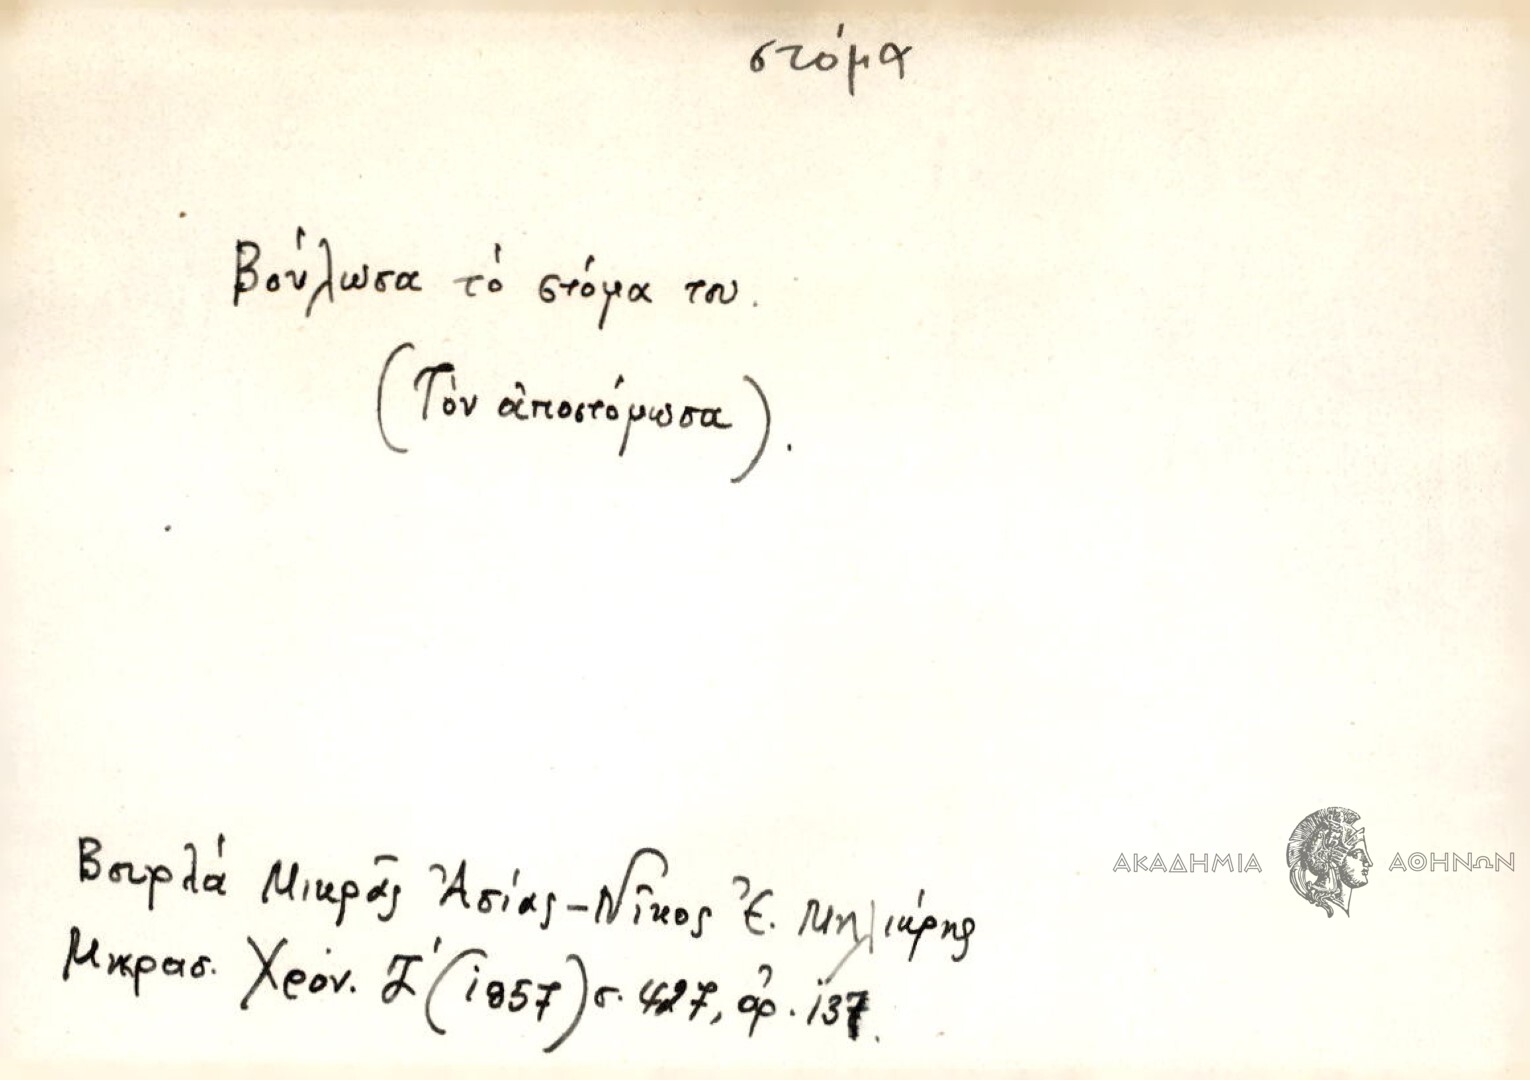 στόμα
Βούλωσα τὸ στόμα του.
(Τὸν ἀποστόμωσα).
Βουρλά Μικρᾶς Ἀσίας - Νῖκος Ἐ. Μηλιώρης
Μικρασ. Χρόν. Ζ' (1957) σ. 427, ἀρ. 137.
ΑΚΑΔΗΜΙΑ ΑΘΗΝΩΝ